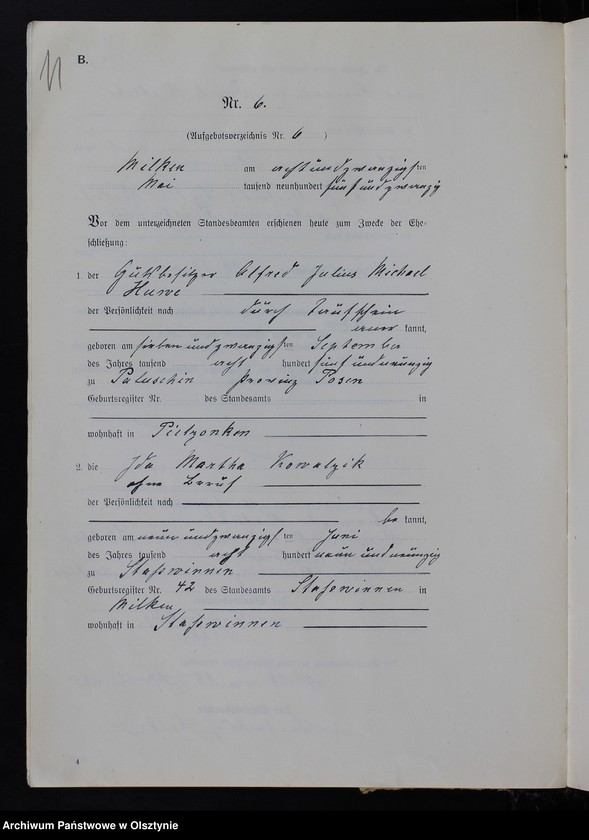 11
B.
Nr. 6.
(Aufgebotsverzeichnis Nr. 6 )
Milken am acht und zwanzigsten
Mai tausend neunhundert fünf und zwanzig
Vor dem unterzeichneten Standesbeamten erschienen heute zum Zwecke der Ehe-
schließung:
1. der Gutsbesitzer Alfred Julius Michael
Huwe
der Persönlichkeit nach durch Taufschein
aner kannt,
geboren am sieben und zwanzigsten September
des Jahres tausend acht hundert fünf und neunzig
zu Paluschin Provinz Posen
Geburtsregister Nr. des Standesamts in
wohnhaft in Pietzonken
2. die Ida Martha Kowalzik
ohne Beruf
der Persönlichkeit nach
be kannt,
geboren am neun und zwanzigsten Juni
des Jahres tausend acht hundert neun und neunzig
zu Staßwinnen
Geburtsregister Nr. 42 des Standesamts Staßwinnen in
Milken
wohnhaft in Staßwinnen
4
Archiwum Państwowe w Olsztynie